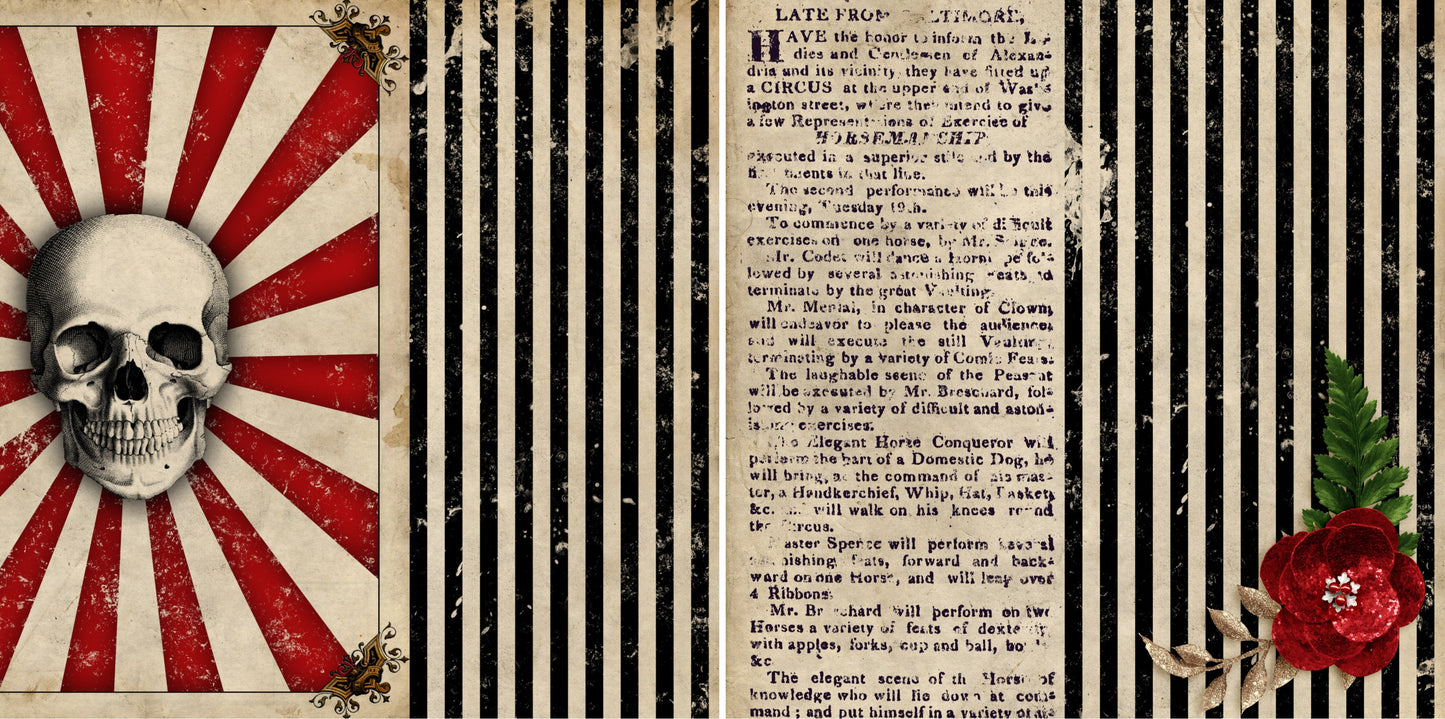 LATE FROM
HAVE the honor to inform the
dies and Gentlemen of Alexan-
dria and its vicinity, they have fitted up
a CIRCUS at the upper end of Was
ington street, where they intend to give
a few Representations of Exercise of
HORSEMANSHIP
executed in a superior stile and by the
in that line.
The second performance will be this
evening, Tuesday 19th.
To commence by a variety of difficult
exercises on one horse, by Mr.
Mr. Codet will dance a Hornpipe fol-
lowed by several astonishing feats to
terminate by the great Vaulting.
Mr. Menial, in character of Clown,
will endeavor to please the audience,
and will execute the still Vaulting,
terminating by a variety of Comic Feats.
The laughable scene of the Peasant
will be executed by Mr. Breschard, fol-
lowed by a variety of difficult and aston-
ishing exercises.
The Elegant Horse Conqueror will
perform the part of a Domestic Dog, he
will bring, at the command of his mas-
ter, a Handkerchief, Whip, Hat, Basket,
&c. and will walk on his knees round
the Circus.
Master Spence will perform several
astonishing feats, forward and back-
ward on one Horse, and will leap over
4 Ribbons.
Mr. Breschard will perform on two
Horses a variety of feats of dexterity,
with apples, forks, cup and ball,
&c
The elegant scene of the Horse of
knowledge who will lie down at com-
mand; and put himself in a variety of